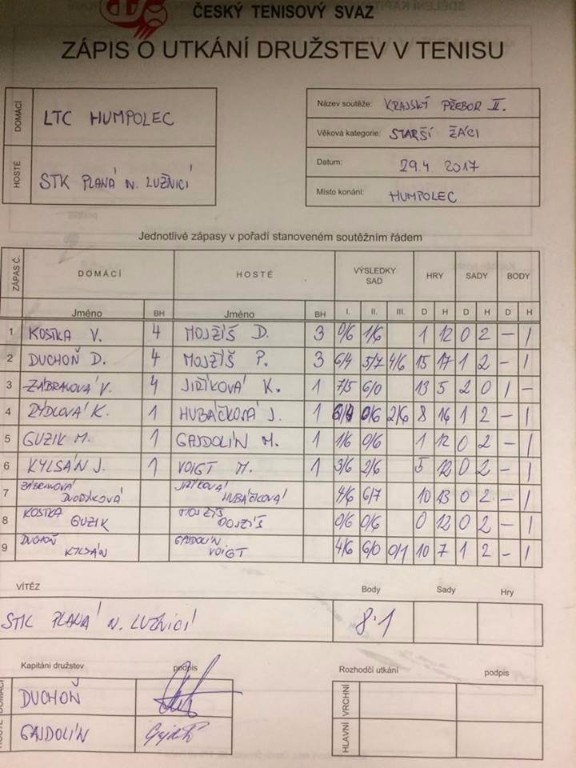 ČESKÝ TENISOVÝ SVAZ
ZÁPIS O UTKÁNÍ DRUŽSTEV V TENISU
DOMÁCÍ LTC HUMPOLEC
HOSTÉ STK PLANÁ N. LUŽNICÍ
Název soutěže: KRAJSKÝ PŘEBOR II.
Věková kategorie: STARŠÍ ŽÁCI
Datum: 29.4 2017
Místo konání: HUMPOLEC
Jednotlivé zápasy v pořadí stanoveném soutěžním řádem
ZÁPAS Č. DOMÁCÍ HOSTÉ VÝSLEDKY SAD HRY SADY BODY
Jméno BH Jméno BH I. II. III. D H D H D H
1 KOSTKA V. 4 MOJŽÍŠ D. 3 0/6 1/6 1 12 0 2 – 1
2 DUCHOŇ D. 4 MOJŽÍŠ P. 3 6/4 5/7 4/6 15 17 1 2 – 1
3 V. 4 JIŘÍKOVÁ K. 1 7/5 6/0 13 5 2 0 1 –
4 K. 1 HUBÁČKOVÁ J. 1 0/6 2/6 8 16 1 2 – 1
5 GUZIK M. 1 GAJDOLÍN M. 1 1/6 0/6 1 12 0 2 – 1
6 KYLSÁN J. 1 VOIGT M. 1 3/6 2/6 5 12 0 2 – 1
7 DVOŘÁKOVÁ JIŘÍKOVÁ HUBÁČKOVÁ 4/6 6/7 10 13 0 2 – 1
8 KOSTKA GUZIK MOJŽÍŠ MOJŽÍŠ 0/6 0/6 0 12 0 2 – 1
9 DUCHOŇ KYLSÁN GAJDOLÍN VOIGT 4/6 6/0 0/1 10 7 1 2 – 1
VÍTĚZ Body Sady Hry
STK PLANÁ N. LUŽNICÍ 8:1
Kapitáni družstev podpis
DOMÁCÍ DUCHOŇ
HOSTÉ GAJDOLÍN
Rozhodčí utkání podpis
VRCHNÍ
HLAVNÍ